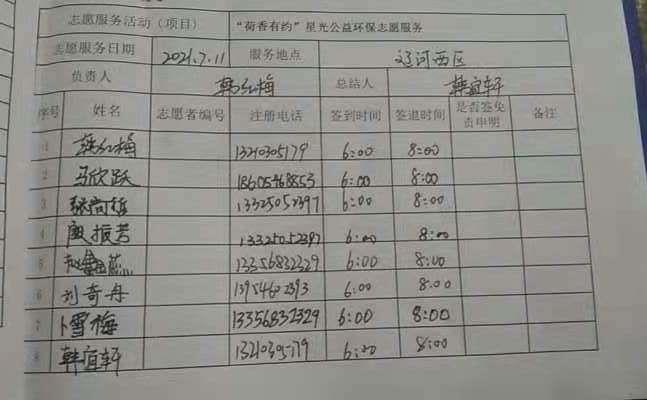 志愿服务活动（项目） “荷香有约”星光公益环保志愿服务
志愿服务日期 2021.7.11 服务地点 辽河西区
负责人 韩红梅 总结人 韩宜轩
序号 姓名 志愿者编号 注册电话 签到时间 签退时间 是否签免责申明 备注
1 韩红梅 13210305179 6:00 8:00
2 马欣跃 18605468853 6:00 8:00
3 13325052397 6:00 8:00
4 13325052397 6:00 8:00
5 13356832329 6:00 8:00
6 刘奇丹 13954602393 6:00 8:00
7 卜雪梅 13356832329 6:00 8:00
8 韩宜轩 13210305179 6:00 8:00